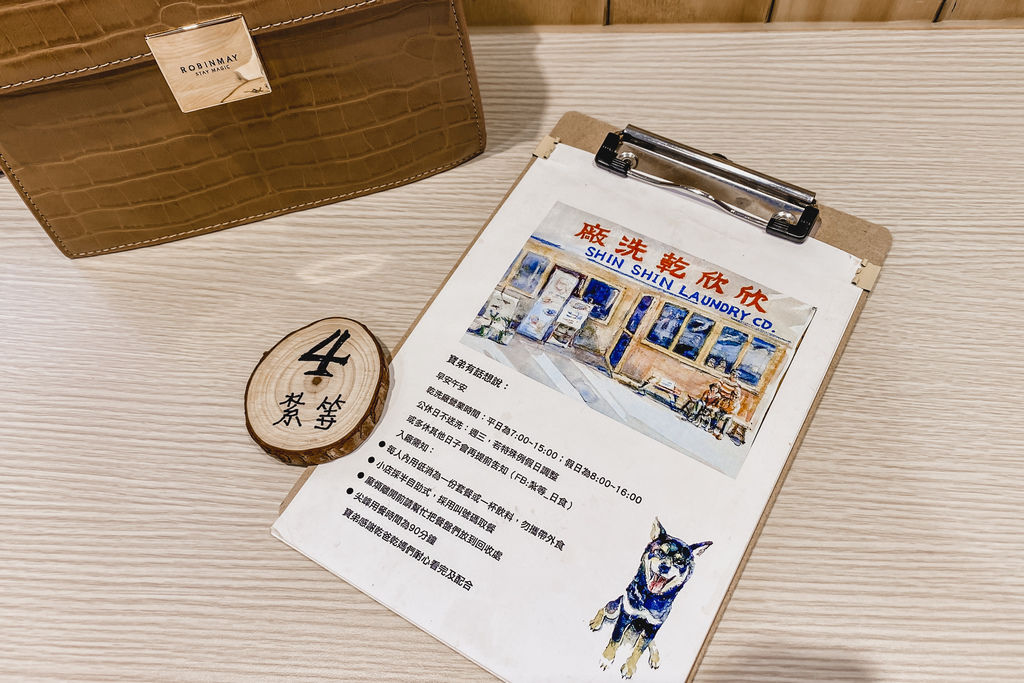 ROBINMAY
STAY MAGIC
廠洗乾欣欣
SHIN SHIN LAUNDRY CO.
4
紮等
寶弟有話想說：
早安午安
乾洗廠營業時間：平日為7:00~15:00；假日為8:00~16:00
公休日不送洗：週三，若特殊例假日調整
或多休其他日子會再提前告知（FB:紮等_日食）
入廠需知：
● 每人內用低消為一份套餐或一杯飲料，勿攜帶外食
● 小店採半自助式，採用叫號碼取餐
● 麻煩離開前請幫忙把餐盤們放到回收處
● 尖峰用餐時間為90分鐘
寶弟感謝乾爸乾媽們耐心看完及配合